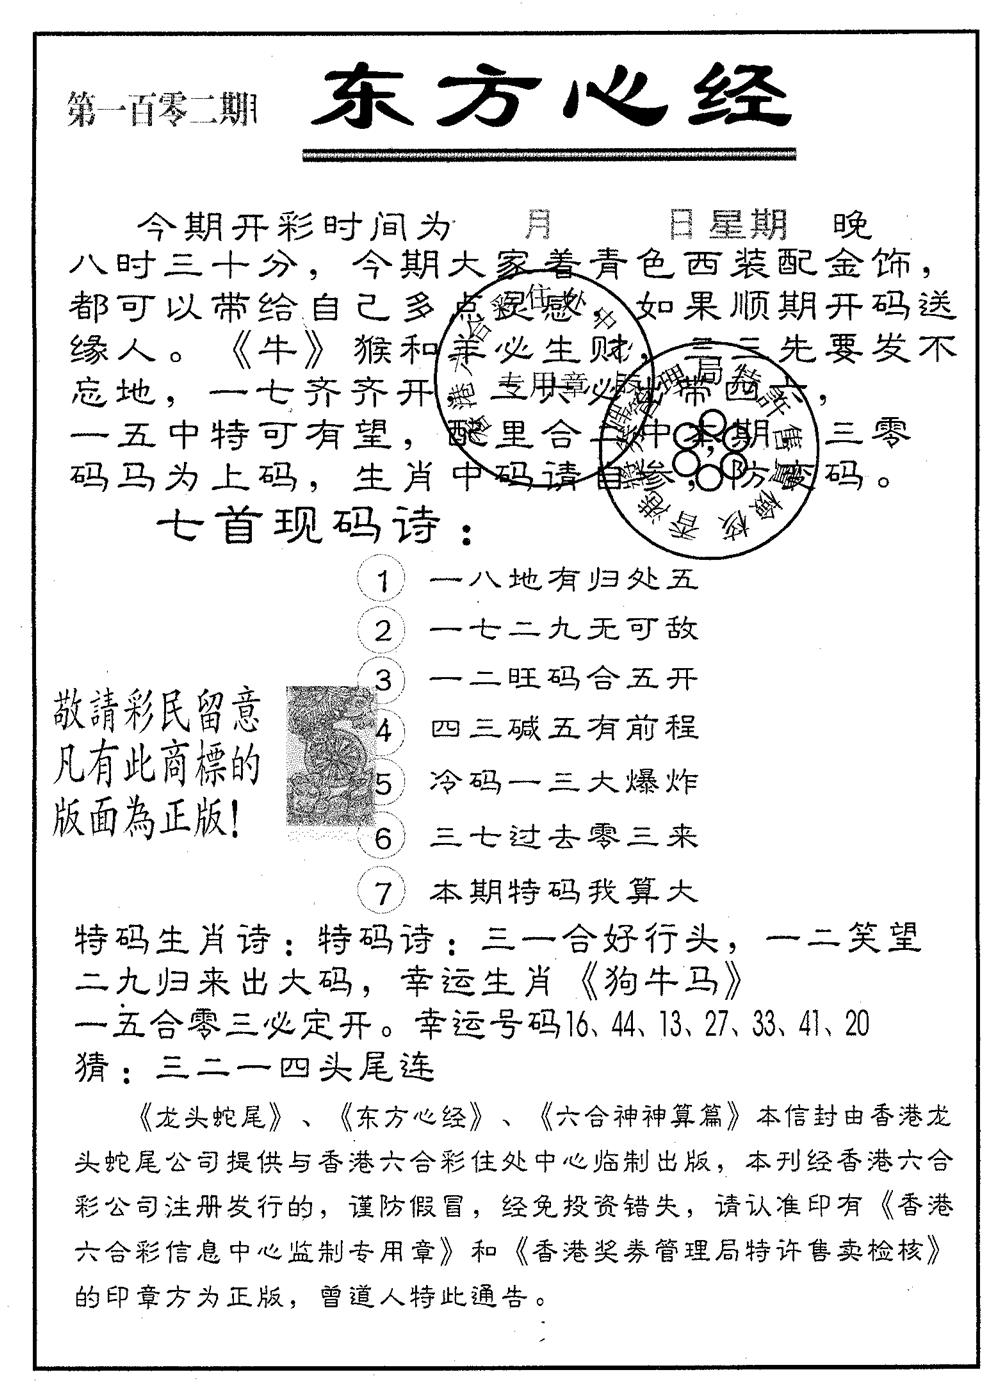 第一百零二期
东方心经
今期开彩时间为 月 日星期 晚
八时三十分，今期大家着青色西装配金饰，
都可以带给自己多点灵感，如果顺期开码送
缘人。《牛》猴和羊必生财，二三先要发不
忘地，一七齐齐开，二六必出带四六，
一五中特可有望，配里合一中本期，三零
码马为上码，生肖中码请自参，防变码。
七首现码诗：
1 一八地有归处五
2 一七二九无可敌
3 一二旺码合五开
4 四三碱五有前程
5 冷码一三大爆炸
6 三七过去零三来
7 本期特码我算大
敬請彩民留意
凡有此商標的
版面為正版！
特码生肖诗：特码诗：三一合好行头，一二笑望
二九归来出大码，幸运生肖《狗牛马》
一五合零三必定开。幸运号码16、44、13、27、33、41、20
猜：三二一四头尾连
《龙头蛇尾》、《东方心经》、《六合神神算篇》本信封由香港龙
头蛇尾公司提供与香港六合彩住处中心临制出版，本刊经香港六合
彩公司注册发行的，谨防假冒，经免投资错失，请认准印有《香港
六合彩信息中心监制专用章》和《香港奖券管理局特许售卖检核》
的印章方为正版，曾道人特此通告。
香港六合彩住处中
专用章
香港獎券管理局特許售賣檢核